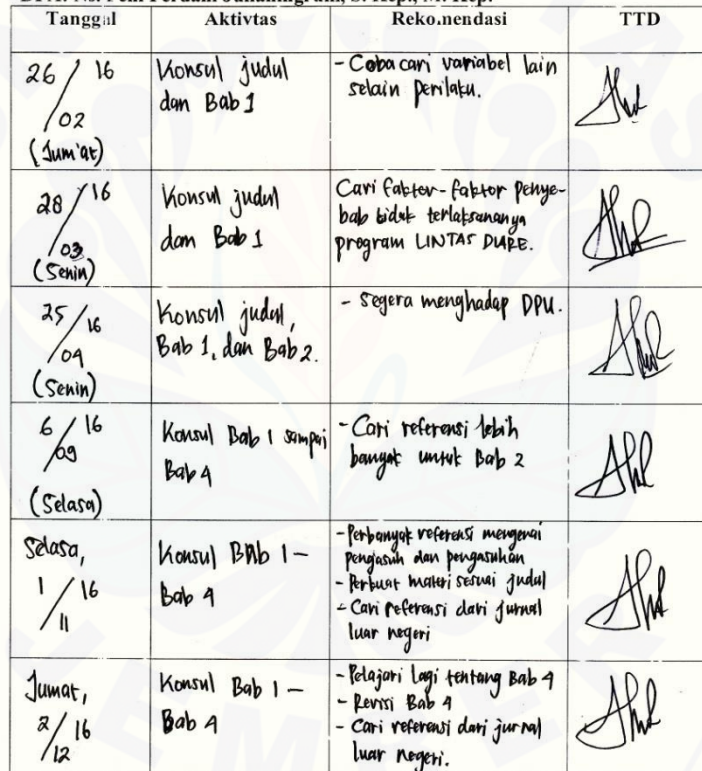 Tanggal Aktivtas Rekomendasi TTD
26/02 16
(Jum'at)
Konsul judul
dan Bab 1
- Coba cari variabel lain
selain perilaku.
28/03 16
(Senin)
Konsul judul
dan Bab 1
Cari faktor-faktor penye-
bab tidak terlaksananya
program LINTAS DIARE.
25/04 16
(Senin)
Konsul judul,
Bab 1, dan Bab 2.
- Segera menghadap DPU.
6/09 16
(Selasa)
Konsul Bab 1 sampai
Bab 4
- Cari referensi lebih
banyak untuk Bab 2
Selasa,
1/11 16
Konsul Bab 1 –
Bab 4
- Perbanyak referensi mengenai
pengasuh dan pengasuhan
- Perkuat materi sesuai judul
- Cari referensi dari jurnal
luar negeri
Jumat,
2/12 16
Konsul Bab 1 –
Bab 4
- Pelajari lagi tentang Bab 4
- Revisi Bab 4
- Cari referensi dari jurnal
luar negeri.